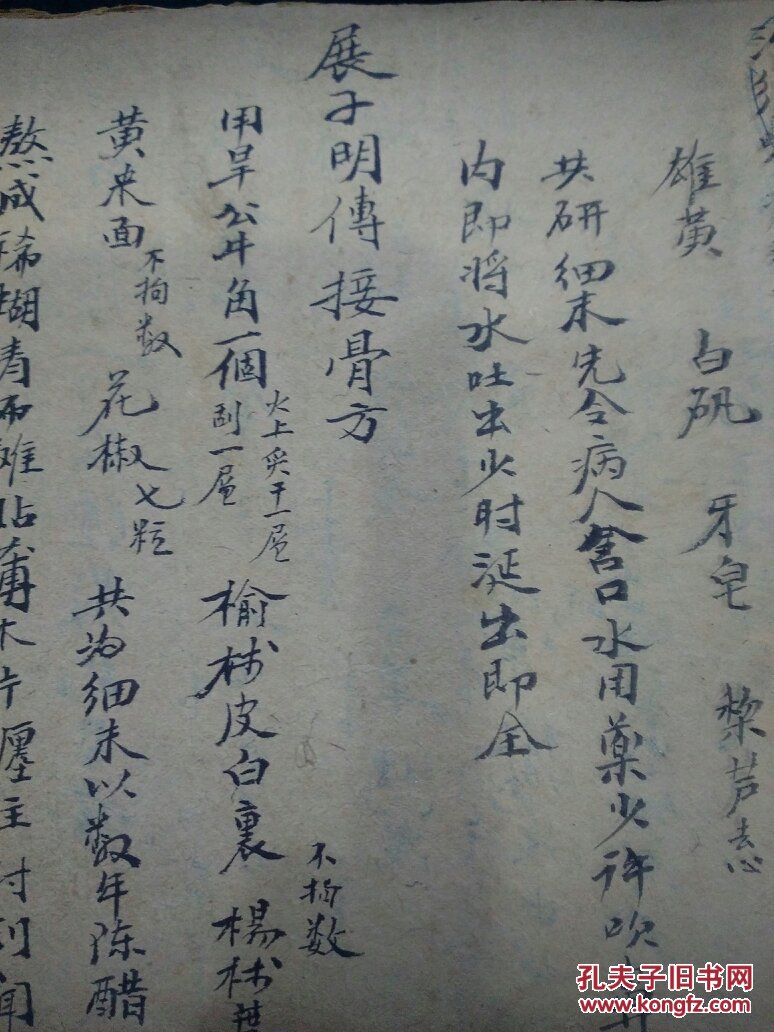 雄黄 白矾 牙皂 黎芦去心
共研细末先令病人含口水用药少许吹
内即将水吐出少时涎出即全
展子明傳接骨方
用旱公牛角一個 火上炙干一层刮一层 榆树皮白裏 不拘数 楊树
黄米面 不拘数 花椒七粒 共为细末以数年陈醋
熬成稀糊青布摊贴 薄木片
孔夫子旧书网
www.kongfz.com